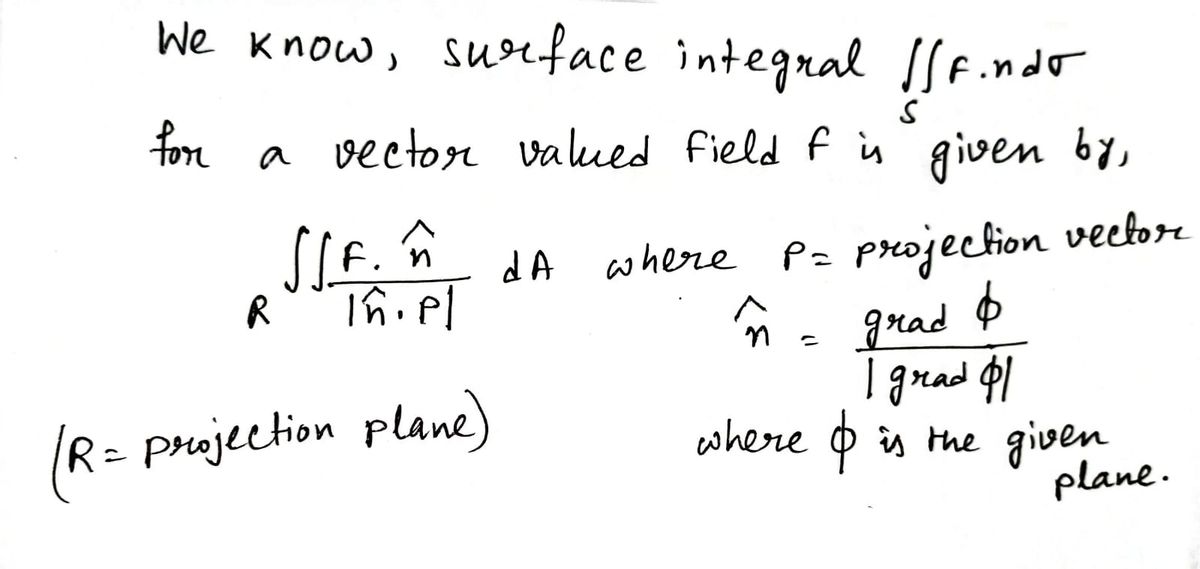 We know, surface integral ∬_S F.ndσ
for a vector valued field F is given by,
∬_R F. n̂ / |n̂.P| dA where P = projection vector
n̂ = grad ϕ / |grad ϕ|
(R = projection plane)
where ϕ is the given
plane.